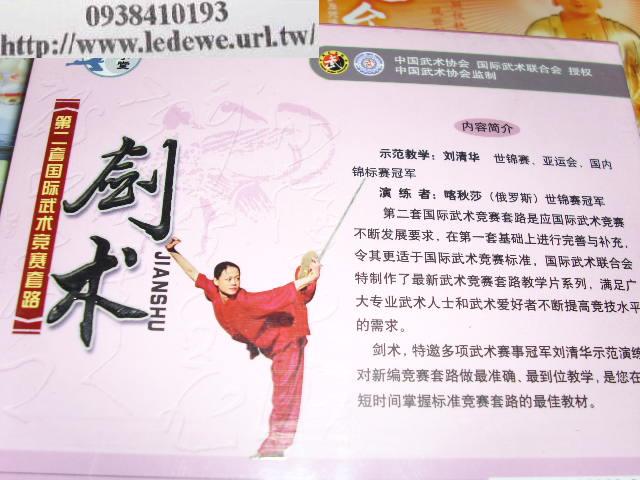 0938410193
http://www.ledewe.url.tw/
中国武术协会 国际武术联合会 授权
中国武术协会监制
第二套国际武术竞赛套路
剑术
JIANSHU
内容简介
示范教学：刘清华 世锦赛、亚运会、国内
锦标赛冠军
演练者：喀秋莎（俄罗斯）世锦赛冠军
第二套国际武术竞赛套路是应国际武术竞赛
不断发展要求，在第一套基础上进行完善与补充，
令其更适于国际武术竞赛标准，国际武术联合会
特制作了最新武术竞赛套路教学片系列，满足广
大专业武术人士和武术爱好者不断提高竞技水平
的需求。
剑术，特邀多项武术赛事冠军刘清华示范演练
对新编竞赛套路做最准确、最到位教学，是您在
短时间掌握标准竞赛套路的最佳教材。